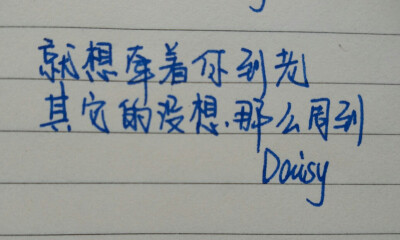 就想牵着你到老
其它的没想那么周到
Daisy